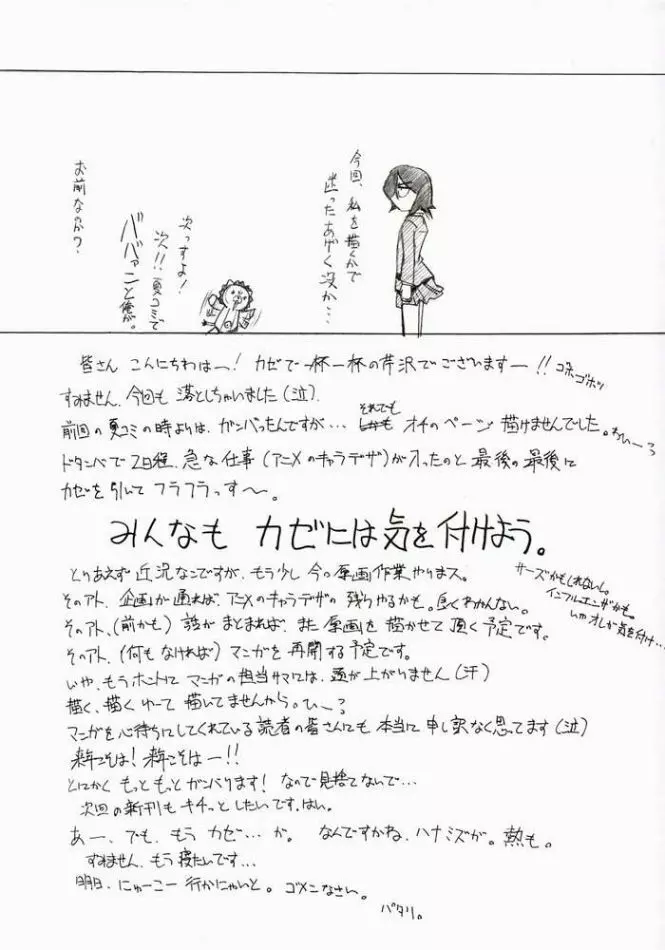 今回、私を描くかで
迷ったあげく没か…
次っすよ!
次!!夏コミで
ババァニと俺が。
お前なのか?
皆さん こんにちわはー! カゼで一杯一杯の芹沢でございますー!! ゴホゴホッ
すみません、今回も落としちゃいました(泣)
前回の夏コミの時よりは、ガンバったんですが… それでも オチのページ 描けませんでした。
ドタンバで 2日程、急な仕事(アニメのキャラデザ)が入ったのと 最後の最後に
カゼを引いて フラフラっす〜。
みんなも カゼには気を付けよう。
とりあえず 近況なんですが、もう少し 今の原画作業やります。
サーズかもしれないし。
インフルエンザかも。
いやオレが気を付け…
そのアト、企画が通れば、アニメのキャラデザの残りやるかも。良くわかんない。
そのアト、(前かも) 話がまとまれば、また原画を描かせて頂く予定です。
そのアト、(何もなければ) マンガを再開する予定です。
いや、もうホントに マンガの担当サマには、頭が上がりません(汗)
描く、描くゆーて 描いてませんから。
マンガを心待ちにしてくれている読者の皆さんにも 本当に申し訳なく思ってます(泣)
来年こそは! 来年こそはー!!
とにかく もっともっとガンバります! なので見捨てないで…
次回の新刊も キチッとしたいです、はい。
あー、でも、もう カゼ…が。 なんですかね、ハナミズが。熱も。
すみません、もう寝たいです…
明日、にゅーこー 行かにゃいと。 ゴメンなさい。
パタリ。